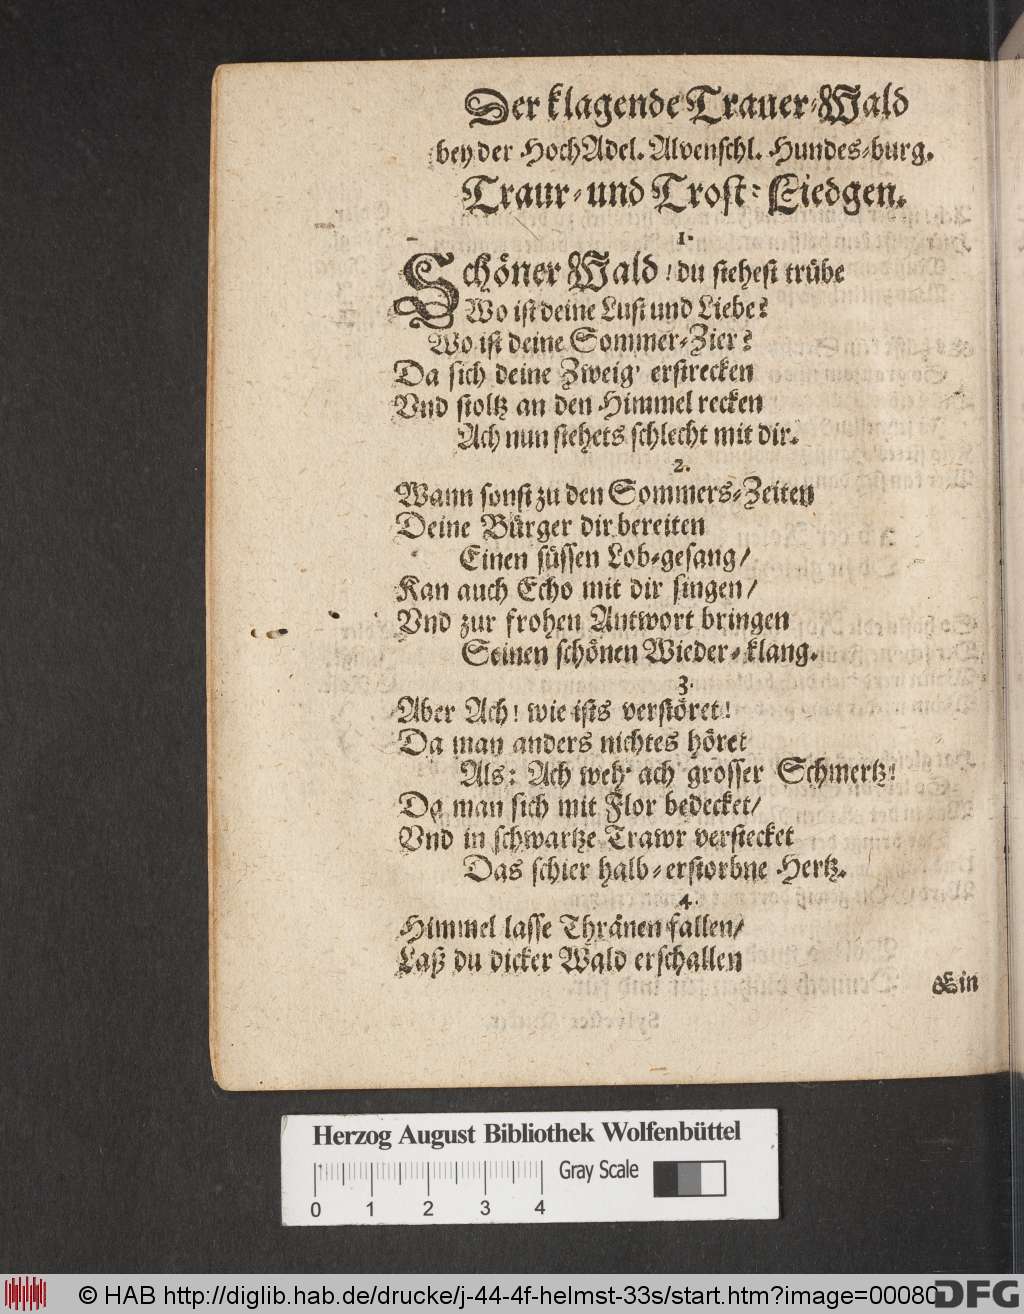 Der klagende Trauer-Wald
bey der HochAdel. Alvenschl. Hundes-burg.
Traur- und Trost-Liedgen.
1.
Schöner Wald! du stehest trübe
Wo ist deine Lust und Liebe?
Wo ist deine Sommer-Zier?
Da sich deine Zweig' erstrecken
Vnd stoltz an den Himmel recken
Ach nun stehets schlecht mit dir.
2.
Wann sonst zu den Sommers-Zeiten
Deine Bürger dir bereiten
Einen süssen Lob-gesang/
Kan auch Echo mit dir singen/
Vnd zur frohen Antwort bringen
Seinen schönen Wieder-klang.
3.
Aber Ach! wie ists verstöret!
Da man anders nichtes höret
Als: Ach weh' ach grosser Schmertz!
Da man sich mit Flor bedecket/
Vnd in schwartze Trawr verstecket
Das schier halb-erstorbne Hertz.
4.
Himmel lasse Thränen fallen/
Laß du dicker Wald erschallen
Ein
Herzog August Bibliothek Wolfenbüttel
Gray Scale
0 1 2 3 4
© HAB http://diglib.hab.de/drucke/j-44-4f-helmst-33s/start.htm?image=00080
DFG